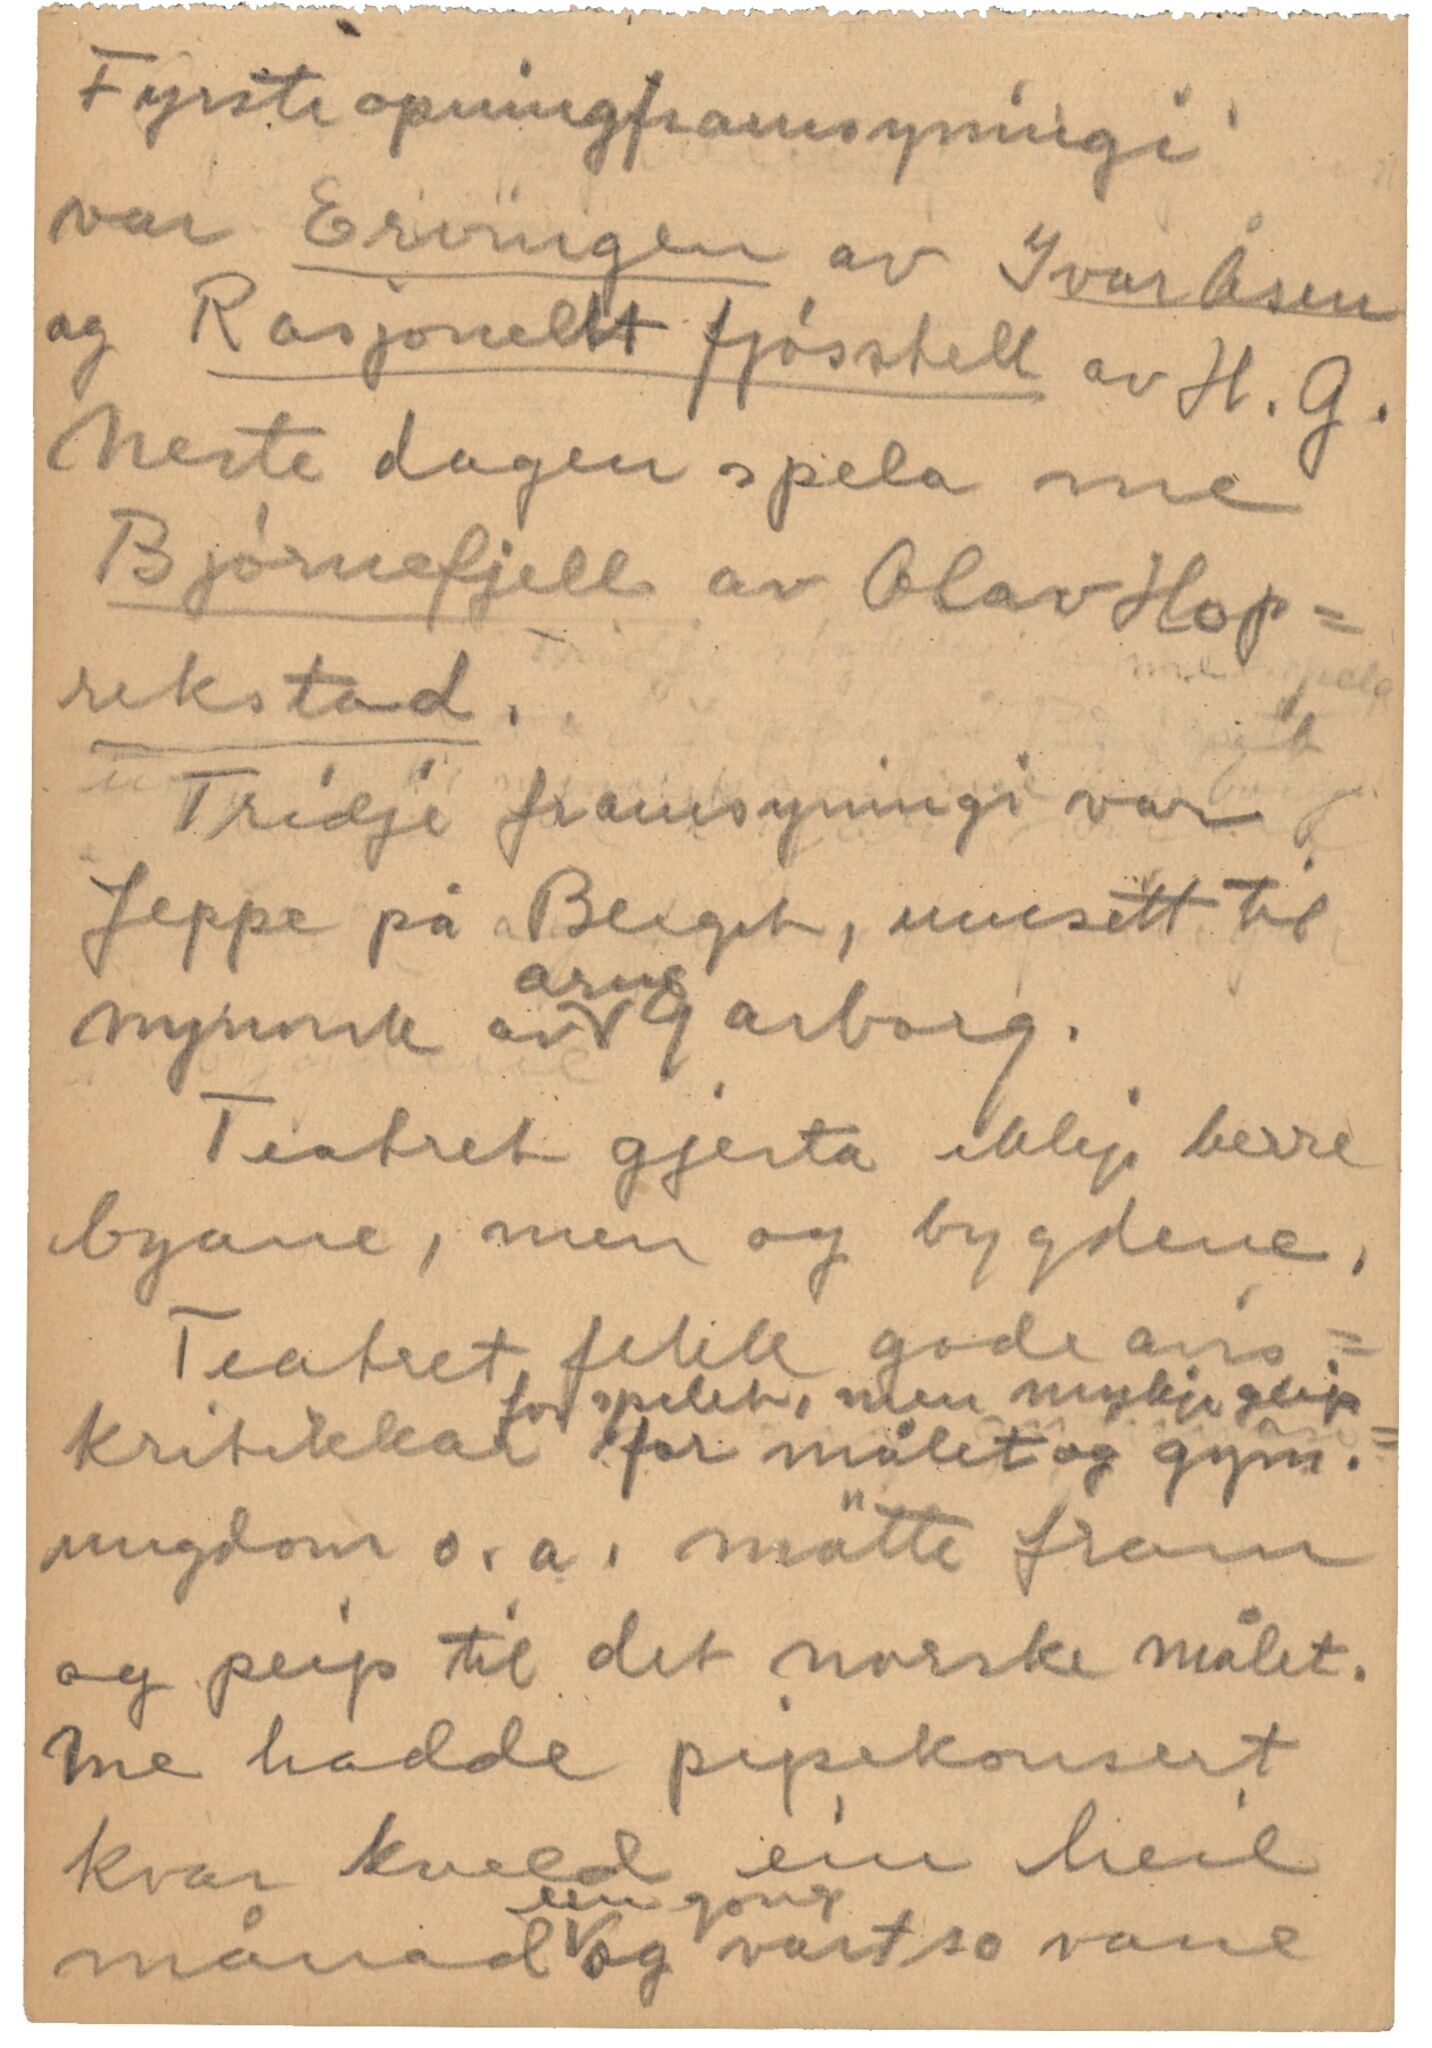 Fyrste opningframsyningi
var Ervingen av Ivar Åsen
og Rasjonellt fjósstell av H. G.
Neste dagen spela me
Bjørnefjell av Olav Hop=
rekstad.
Tridje framsyningi var
Jeppe på Berget, umsett til
nynorsk av Arne Garborg.
Teatret gjesta ikkje berre
byane, men og bygdene,
Teatret fekk gode avis=
kritikkar for spelet, men mykje gleip
for målet og gym.=
ungdom o. a. møtte fram
og peip til det norske målet.
Me hadde pipekonsert
kvar kveld ein heil
månad ein gong og vart so vane